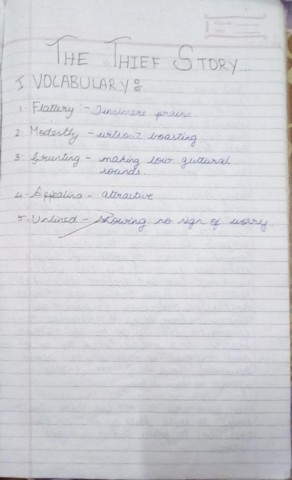 THE THIEF STORY
I VOCABULARY:
1. Flattery :- Insincere praise
2. Modestly - without boasting
3. Grunting - making low guttural
sounds.
4. Appealing - attractive
5. Unlined - showing no sign of worry.